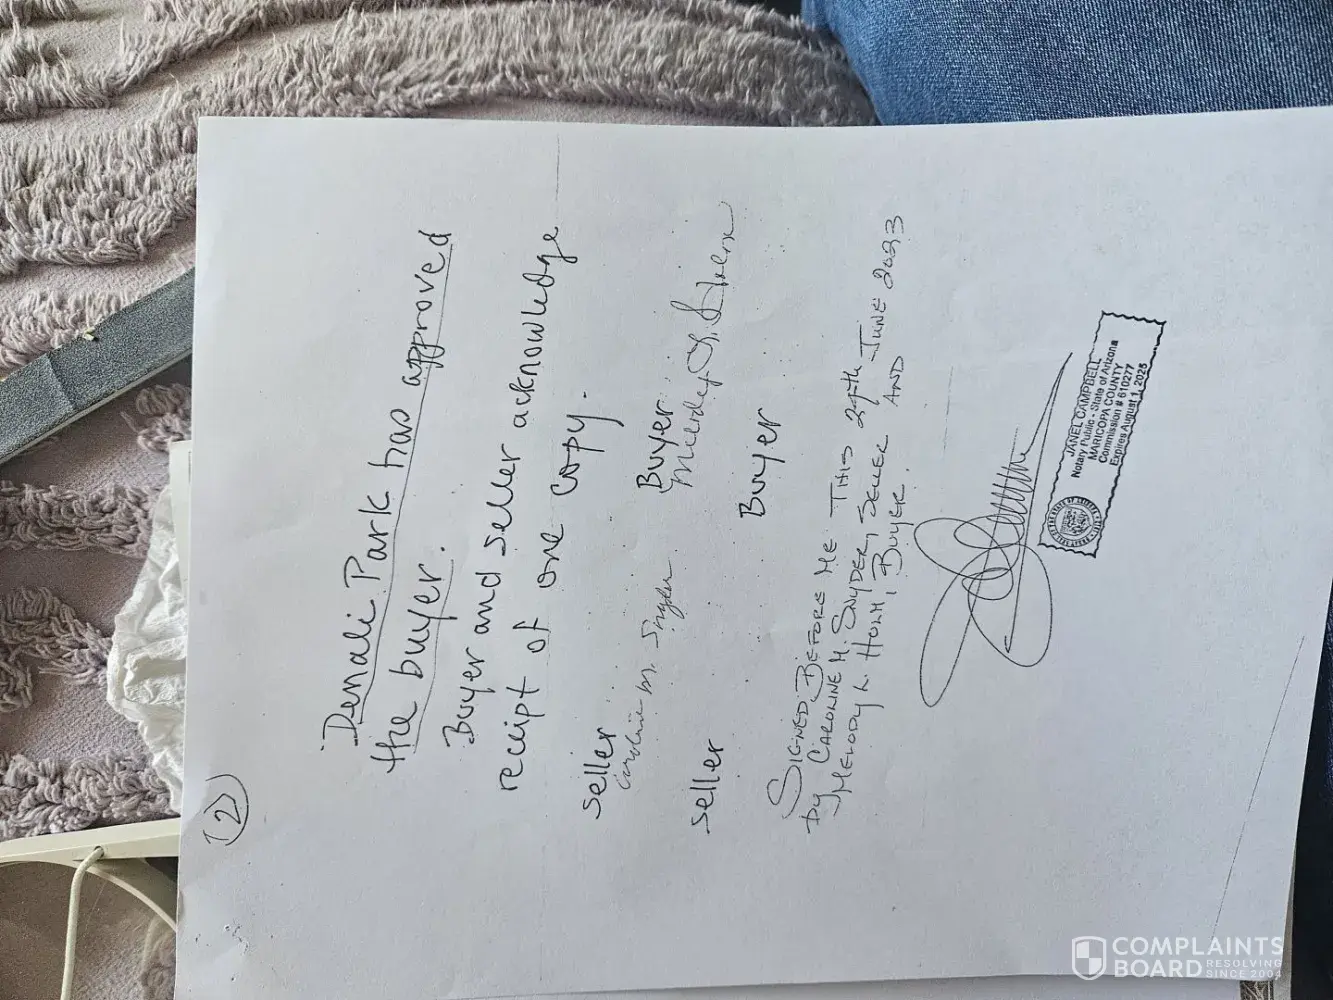 (2)
Denali Park has approved
the buyer.
Buyer and seller acknowledge
receipt of one copy.
Seller Buyer
Caroline M. Snyder Melody L. Holm
Seller Buyer
SIGNED BEFORE ME THIS 24th JUNE 2023
by CAROLINE M. SNYDER, SELLER AND
MELODY L. HOLM, BUYER.
JANEL CAMPBELL
Notary Public - State of Arizona
MARICOPA COUNTY
Commission # 610277
Expires August 1, 2025
COMPLAINTS
BOARD RESOLVING
SINCE 2004